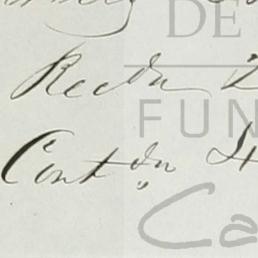 DE
Recdn 2
FUN
Contdn 4
Ca